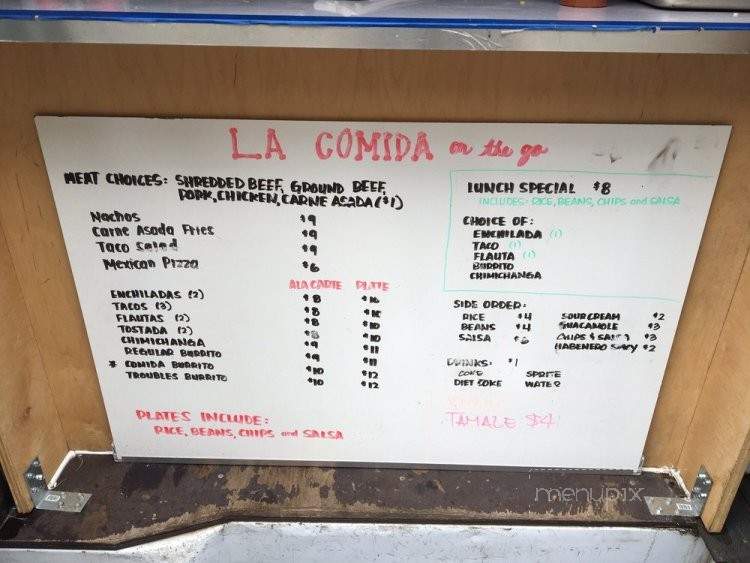 LA COMIDA on the go
MEAT CHOICES: SHREDDED BEEF, GROUND BEEF,
PORK, CHICKEN, CARNE ASADA ($1)
Nachos $9
Carne Asada Fries $9
Taco Salad $9
Mexican Pizza $6
ALA CARTE PLATE
ENCHILADAS (2) $8 $10
TACOS (3) $8 $10
FLAUTAS (2) $8 $10
TOSTADA (2) $8 $10
CHIMICHANGA $9 $11
REGULAR BURRITO $9 $11
* COMIDA BURRITO $10 $12
TROUBLES BURRITO $10 $12
PLATES INCLUDE:
RICE, BEANS, CHIPS and SALSA
LUNCH SPECIAL $8
INCLUDES: RICE, BEANS, CHIPS and SALSA
CHOICE OF:
ENCHILADA (1)
TACO (1)
FLAUTA (1)
BURRITO
CHIMICHANGA
SIDE ORDER:
RICE $4 SOUR CREAM $2
BEANS $4 GUACAMOLE $3
SALSA CHIPS & SALSA $3
HABENERO $2
DRINKS: $1
COKE SPRITE
DIET COKE WATER
TAMALE $4
menupix